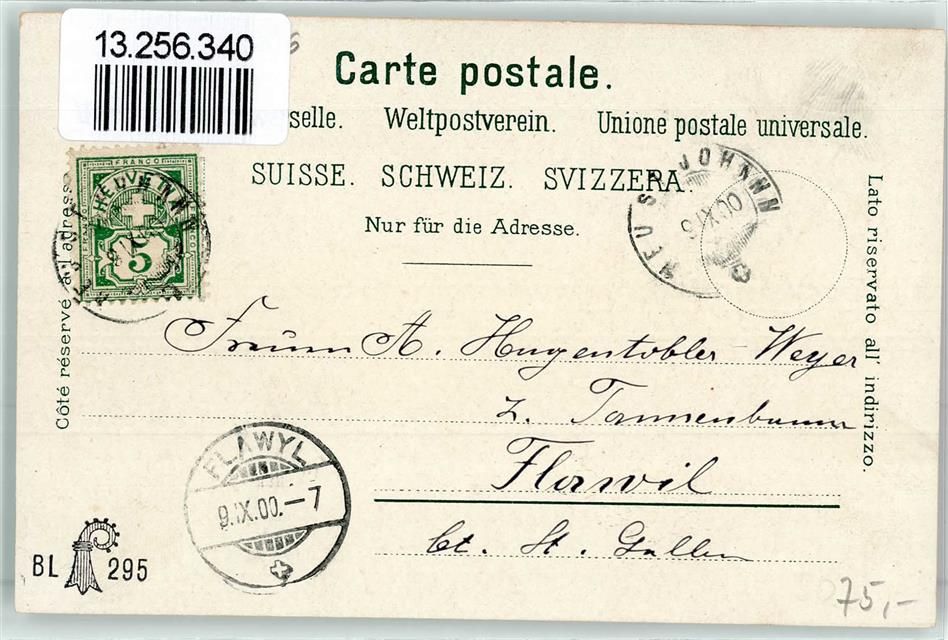 13.256.340
Carte postale.
selle. Weltpostverein. Unione postale universale.
SUISSE. SCHWEIZ. SVIZZERA.
Nur für die Adresse.
Côté réservé à l'adresse
Lato riservato all' indirizzo.
FRANCO
HELVETIA
5
NEU ST JOHANN
9.IX.00
A. Hugentobler-Weyer
z. Tannenbaum
Flawil
Ct. St. Gallen
FLAWYL
9.IX.00.–7
BL 295
75,-